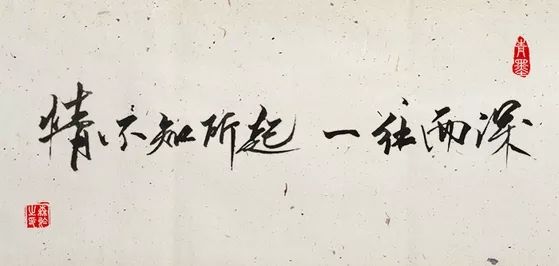 情不知所起 一往而深
青墨